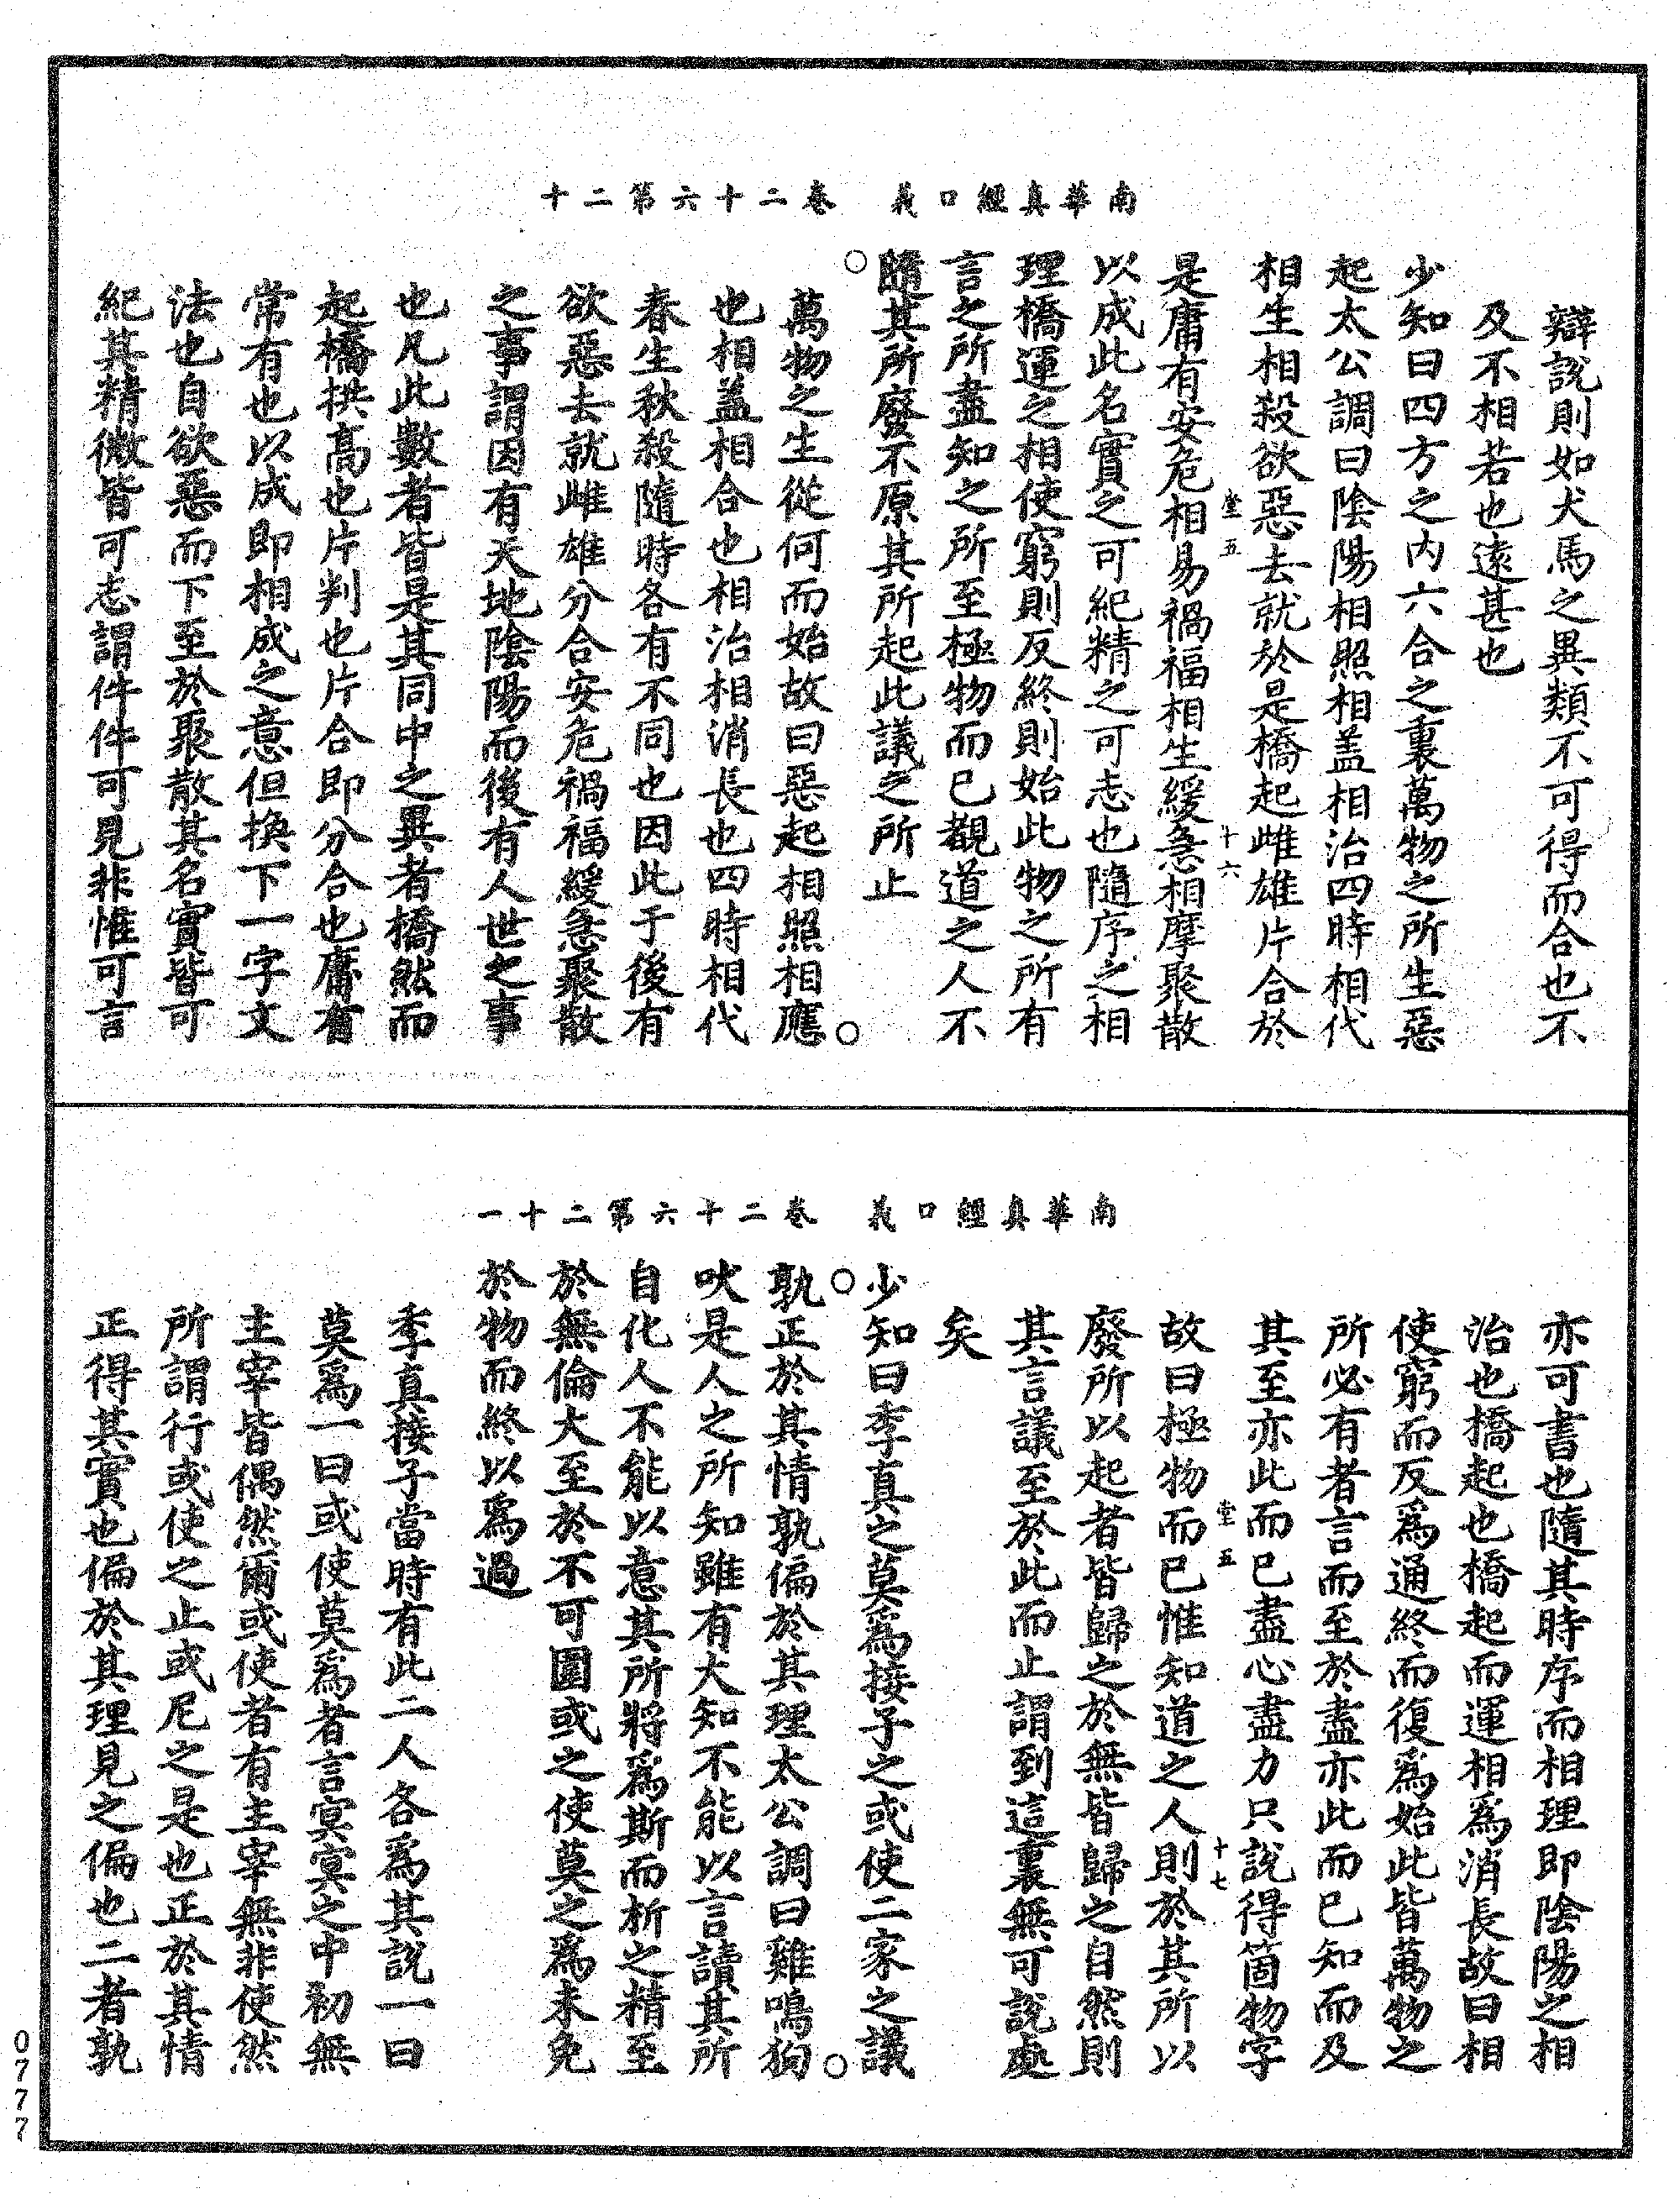 南華真經口義　卷二十六第二十
辯説則如犬馬之異類不可得而合也不
及不相若也遠甚也
少知曰四方之内六合之裏萬物之所生惡
起太公調曰陰陽相照相盖相治四時相代
相生相殺欲惡去就於是橋起雌雄片合於
堂五
十六
是庸有安危相易禍福相生緩急相摩聚散
以成此名實之可紀精之可志也隨序之相
理橋運之相使窮則反終則始此物之所有
言之所盡知之所至極物而已觀道之人不
隨其所廢不原其所起此議之所止
萬物之生從何而始故曰惡起相照相應
也相盖相合也相治相消長也四時相代
春生秋殺隨時各有不同也因此于後有
欲惡去就雌雄分合安危禍福緩急聚散
之事謂因有天地陰陽而後有人世之事
也凡此數者皆是其同中之異者橋然而
起橋拱高也片判也片合即分合也庸有
常有也以成即相成之意但換下一字文
法也自欲惡而下至於聚散其名實皆可
紀其精微皆可志謂件件可見非惟可言
南華真經口義　卷二十六第二十一
亦可書也隨其時序而相理即陰陽之相
治也橋起也橋起而運相爲消長故曰相
使窮而反爲通終而復爲始此皆萬物之
所必有者言而至於盡亦此而已知而及
其至亦此而已盡心盡力只説得箇物字
堂五
十七
故曰極物而已惟知道之人則於其所以
廢所以起者皆歸之於無皆歸之自然則
其言議至於此而止謂到這裏無可説處
矣
少知曰季真之莫爲接子之或使二家之議
孰正於其情孰偏於其理太公調曰雞鳴狗
吠是人之所知雖有大知不能以言讀其所
自化人不能以意其所將爲斯而析之精至
於無倫大至於不可圍或之使莫之爲未免
於物而終以爲過
季真接子當時有此二人各爲其説一曰
莫爲一曰或使莫爲者言冥冥之中初無
主宰皆偶然爾或使者有主宰無非使然
所謂行或使之止或尼之是也正於其情
正得其實也偏於其理見之偏也二者孰
0777